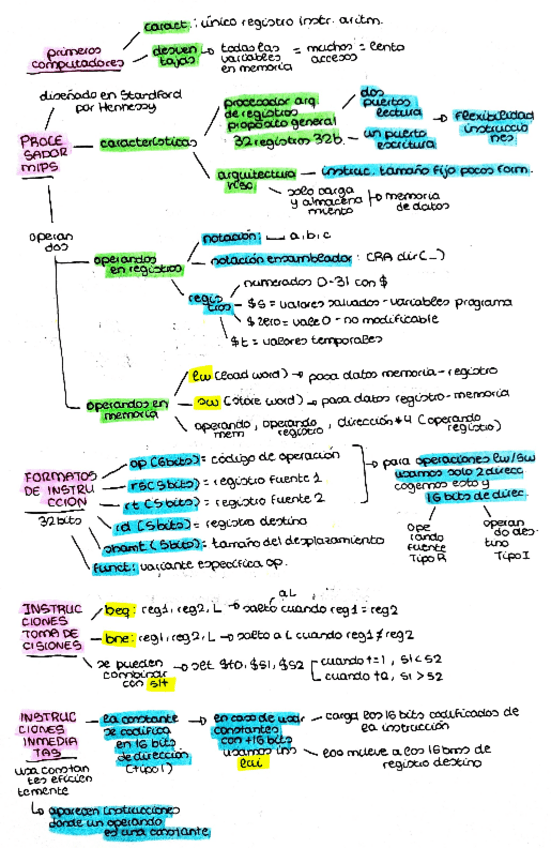 caract.: único registro instr. aritm.
primeros
computadores
desven
tajas
todas las
variables
en memoria
= muchos = lento
accesos
diseñado en Standford
por Hennessy
PROCE
SADOR
MIPS
características
procesador arq.
de registros
propósito general
32 registros 32b.
dos
puertos
lectura
un puerto
escritura
flexibilidad
instruccio
nes
arquitectura
RISC
instruc. tamaño fijo pocos form.
solo carga
y almacena
miento
memoria
de datos
operan
dos
operandos
en registros
notación: a, b, c
notación ensamblador:
regis
tros
numerados 0-31 con $
$s = valores salvados - variables programa
$zero = vale 0 - no modificable
$t = valores temporales
operandos en
memoria
lw (load word) → pasa datos memoria - registro
sw (store word) → pasa datos registro - memoria
operando, operando, dirección*4 (operando
mem registro registro)
FORMATOS
DE INSTRU
CCIÓN
32 bits
op (6bits) = código de operación
rs (5bits) = registro fuente 1
rt (5bits) = registro fuente 2
rd (5bits) = registro destino
shamt (5bits) = tamaño del desplazamiento
funct: variante específica op.
para operaciones lw/sw
usamos solo 2 direcc
cogemos esto y
16 bits de direc.
ope
rando
fuente
Tipo R
operan
do des-
tino
Tipo I
INSTRUC
CIONES
TOMA DE
CISIONES
beq: reg1, reg2, L → salto cuando reg1 = reg2
a L
bne: reg1, reg2, L → salto a L cuando reg1 ≠ reg2
se pueden
combinar
con slt
slt $t0, $s1, $s2
cuando t=1, s1<s2
cuando t0, s1>s2
INSTRUC
CIONES
INMEDIA
TAS
la constante
se codifica
en 16 bits
de dirección
(tipo I)
en caso de usar
constantes
con +16 bits
usamos ins
lui
carga los 16 bits codificados de
la instrucción
los mueve a los 16 bms de
registro destino
usa constan
tes eficien
temente
aparecen instrucciones
donde un operando
es una constante